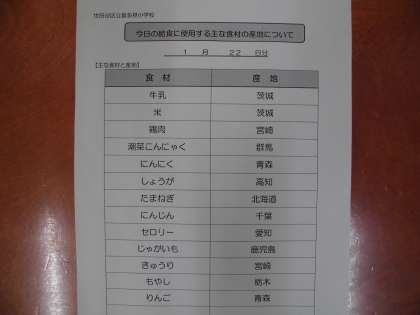 世田谷区立喜多見小学校
今日の給食に使用する主な食材の産地について
1 月 22 日分
【主な食材と産地】
食材 産地
牛乳 茨城
米 茨城
鶏肉 宮崎
海藻こんにゃく 群馬
にんにく 青森
しょうが 高知
たまねぎ 北海道
にんじん 千葉
セロリー 愛知
じゃがいも 鹿児島
きゅうり 宮崎
もやし 栃木
りんご 青森